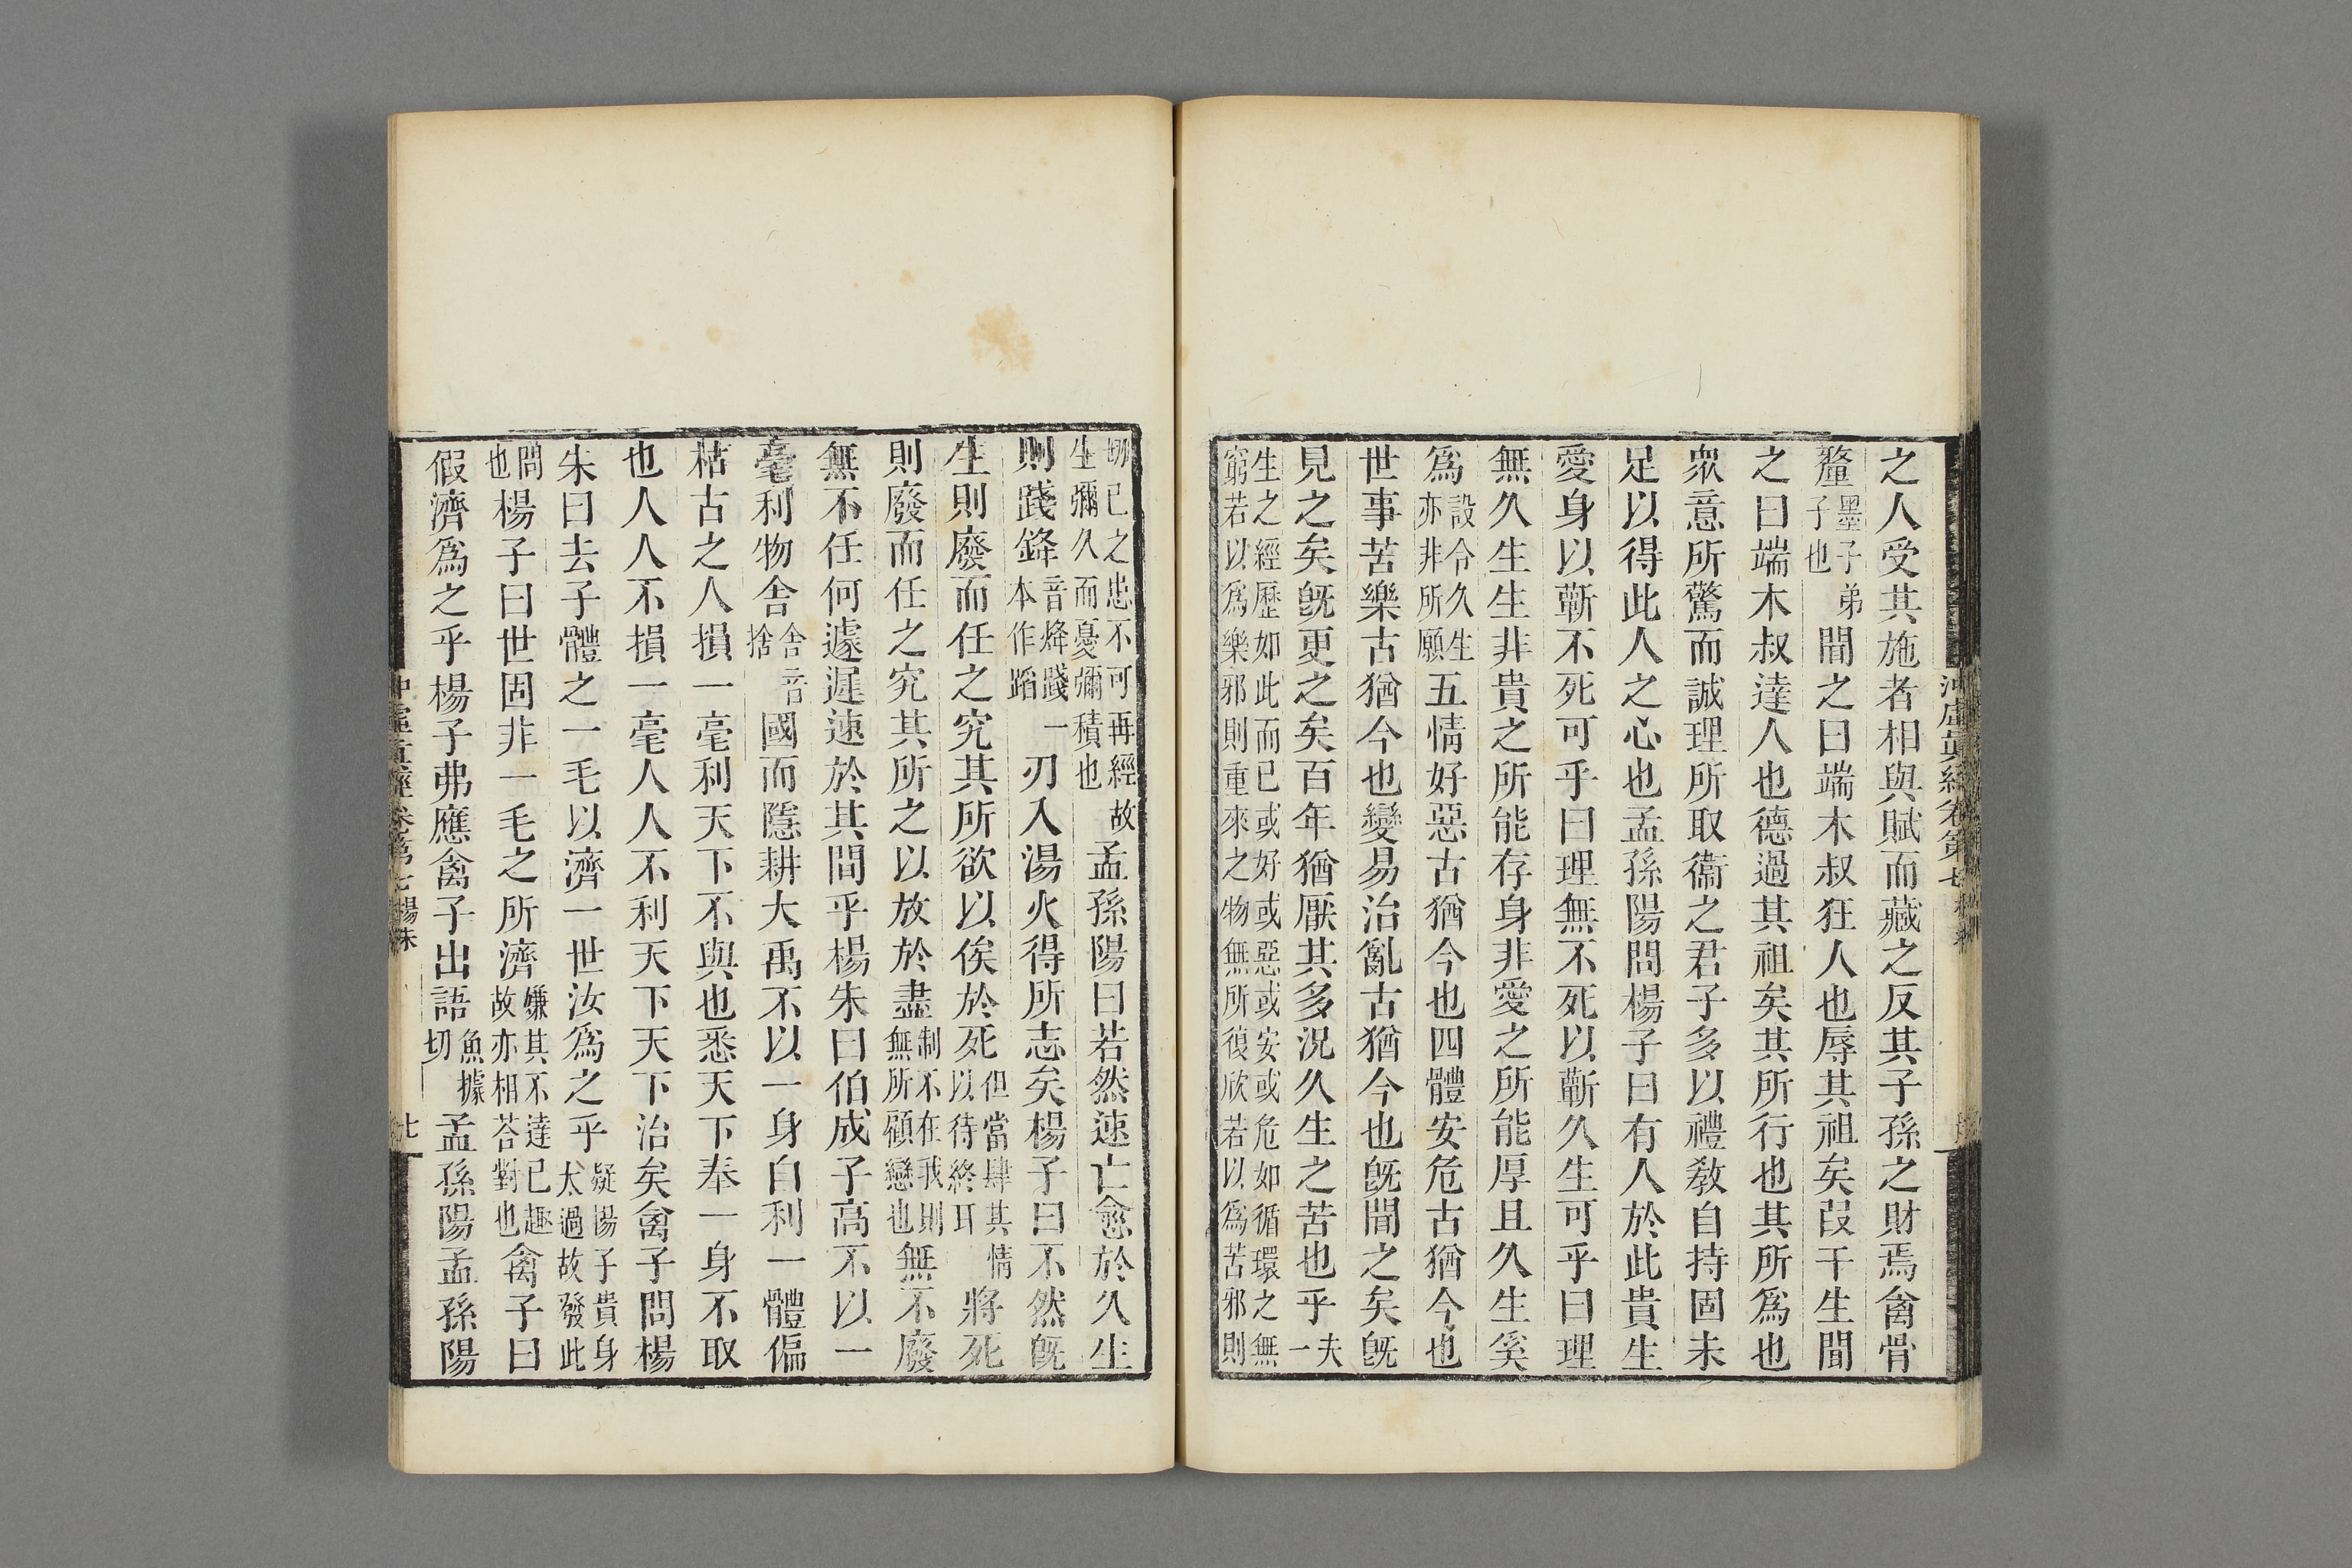 冲虛眞經卷第七
之人受其施者相與賦而藏之反其子孫之財焉禽骨
釐墨子弟子也聞之曰端木叔狂人也辱其祖矣叚干生聞
之曰端木叔達人也德過其祖矣其所行也其所爲也
衆意所驚而誠理所取衞之君子多以禮敎自持固未
足以得此人之心也孟孫陽問楊子曰有人於此貴生
愛身以蘄不死可乎曰理無不死以蘄久生可乎曰理
無久生生非貴之所能存身非愛之所能厚且久生奚
爲設令久生亦非所願五情好惡古猶今也四體安危古猶今也
世事苦樂古猶今也變易治亂古猶今也旣聞之矣旣
見之矣旣更之矣百年猶厭其多況久生之苦也乎夫一
生之經歷如此而已或好或惡或安或危如循環之無
窮若以爲樂邪則重來之物無所復欣若以爲苦邪則
切己之患不可再經故生彌久而憂彌積也孟孫陽曰若然速亡愈於久生
則踐鋒音烽踐一本作蹈刃入湯火得所志矣楊子曰不然旣
生則廢而任之究其所欲以俟於死但當肆其情以待終耳將死
則廢而任之究其所之以放於盡制不在我則無所顧戀也無不廢
無不任何遽遲速於其間乎楊朱曰伯成子高不以一
毫利物舍舍音捨國而隱耕大禹不以一身自利一體偏
枯古之人損一毫利天下不與也悉天下奉一身不取
也人人不損一毫人人不利天下天下治矣禽子問楊
朱曰去子體之一毛以濟一世汝爲之乎疑楊子貴身太過故發此
問也楊子曰世固非一毛之所濟嫌其不達己趣故亦相荅對也禽子曰
假濟爲之乎楊子弗應禽子出語魚據切孟孫陽孟孫陽
冲虛眞經卷第七楊朱